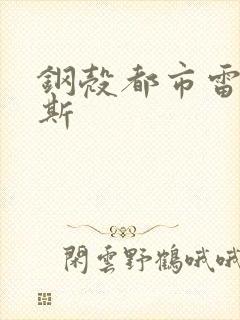 鋼殼都市雷
斯
閑雲野鶴哦哦